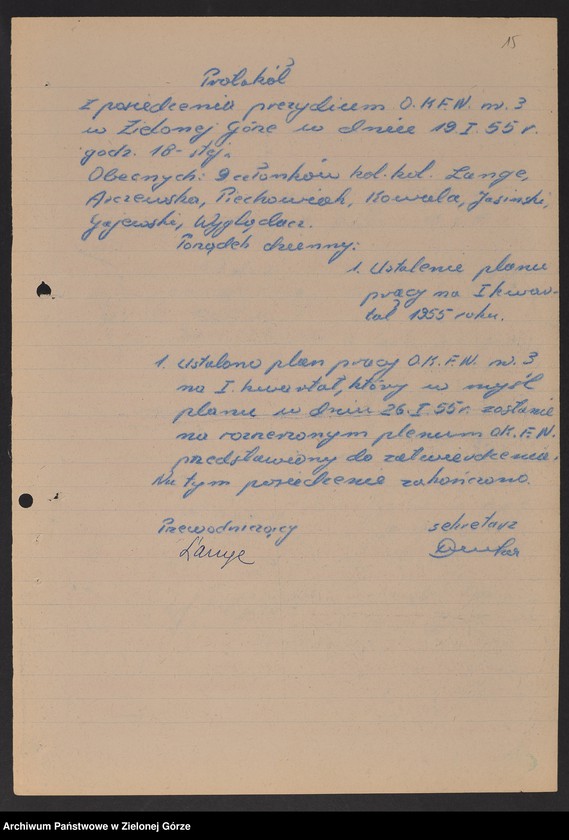 15
Protokół
I posiedzenia prezydium O.K.F.N. nr. 3
w Zielonej Górze w dniu 19.I.55 r.
godz. 18-stej.
Obecnych: Członków kol. kol. Lange,
Piechowiak, Kowala, Jasiński,
Gajewski, Wyglądacz.
Porządek dzienny:
1. Ustalenie planu
pracy na I kwar-
tał 1955 roku.
1. Ustalono plan pracy O.K.F.N. nr. 3
na I. kwartał, który w myśl
planu w dniu 26.I.55r. zostanie
na rozszerzonym plenum O.K.F.N.
przedstawiony do zatwierdzenia.
Na tym posiedzenie zakończono.
Przewodniczący sekretarz
Lange
Archiwum Państwowe w Zielonej Górze